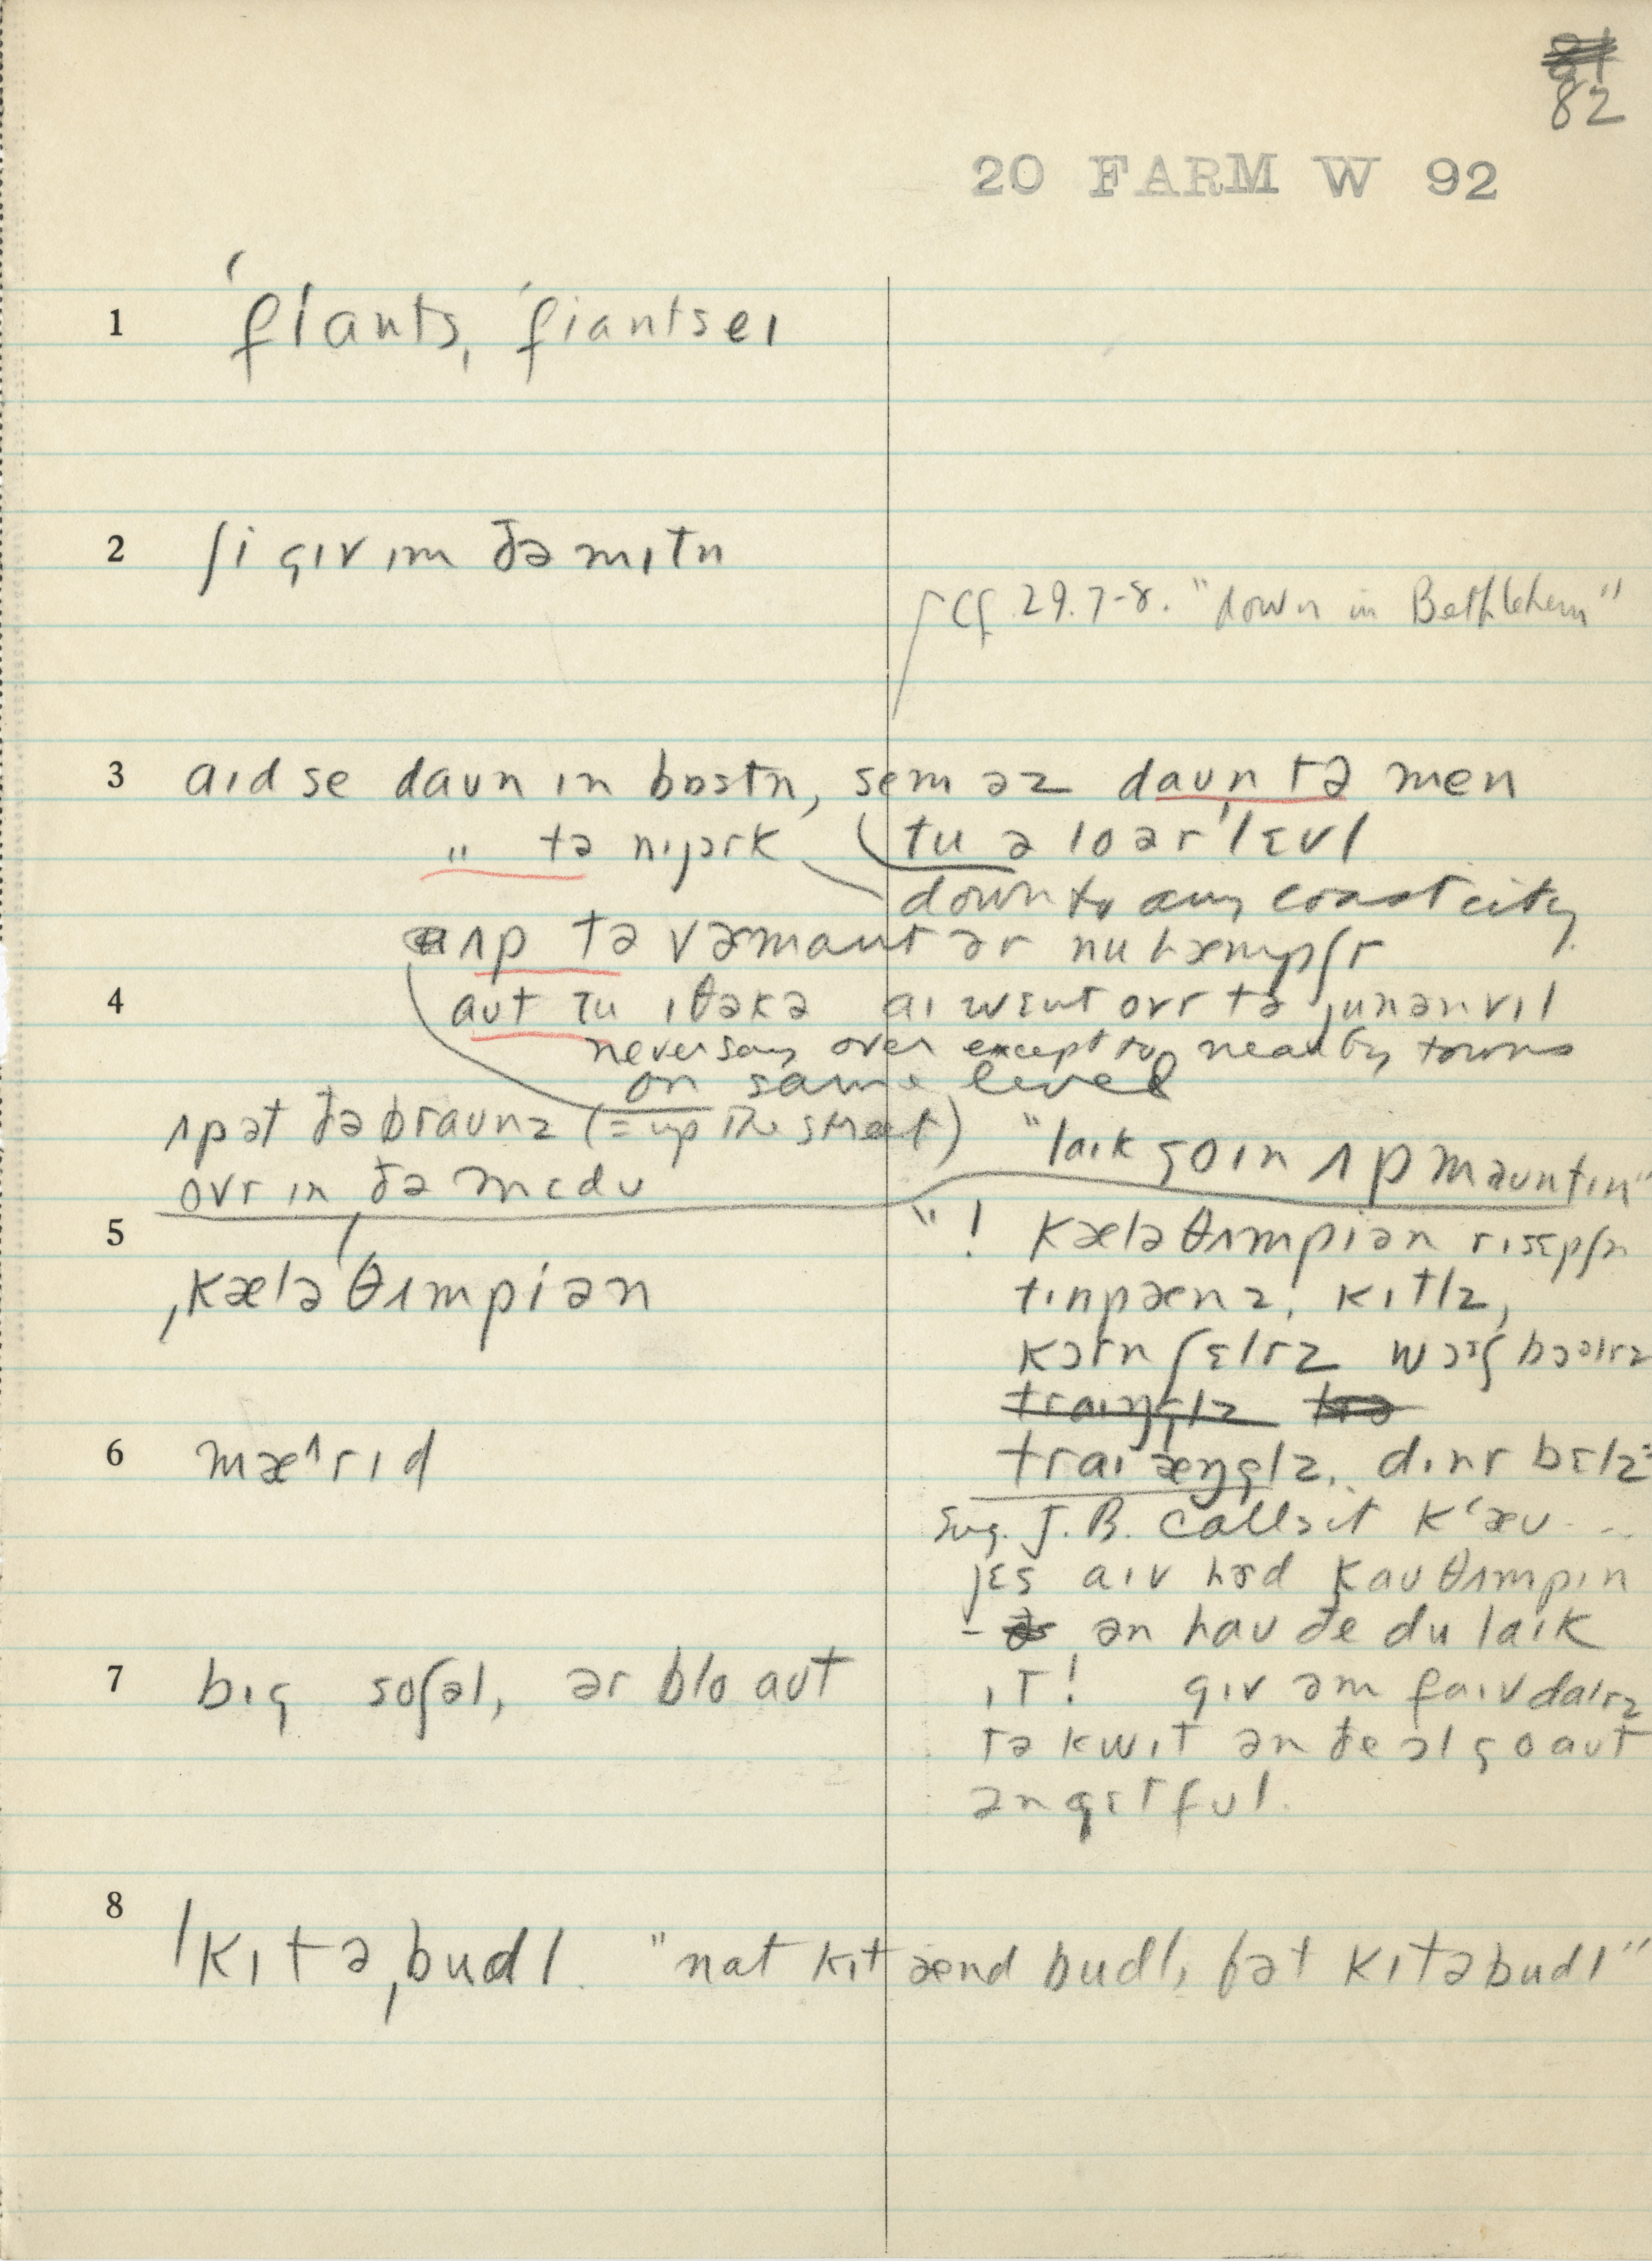 82
20 FARM W 92
1 ˈfɪants, ˈfiantseɪ
2 ʃi gɪv ɪm ðə mɪtn
Cf. 29.7-8. "down in Bethlehem"
3 aɪd se daʊn ɪn bɒstn, sem əz daʊn tə men
" tə nɪjɔrk tu ə loərˈlɛvl
down to any coast city
ʌp tə vəmɑnt ər nuhæmpʃr
4 aʊt tu ɪθəkə aɪ wɛnt ovr tə junənvɪl
never say over except to nearby towns
on same level
ʌp ət ðə braʊnz (= up the street) "laɪk goɪn ʌp maʊntɪn"
ovr ɪn ðə mɛdʊ
5 ˌkæləˈθʌmpiən
"! kæləθʌmpiən rɪsɛpʃn
tɪnpænz, kɪtlz,
kɔrn ʃɛlrz wɔʃ bɔɪlrz
traɪŋglz
traɪæŋglz, dɪnr bɛlz
6 mæˈrɪd
Sug. J.B. calls it k'æʊ ...
jɛs aɪv hɜd kaʊθʌmpɪn
- ən haʊ ðe du laɪk
7 bɪg soʃəl, ər blo aʊt
ɪt! gɪv əm faɪv dalrz
tə kwɪt ən ðe ɔl go aʊt
ən gɛt ful.
8 ˈkɪtəˌbudl. "nat kɪt ænd budl, bət kɪtəbudl"